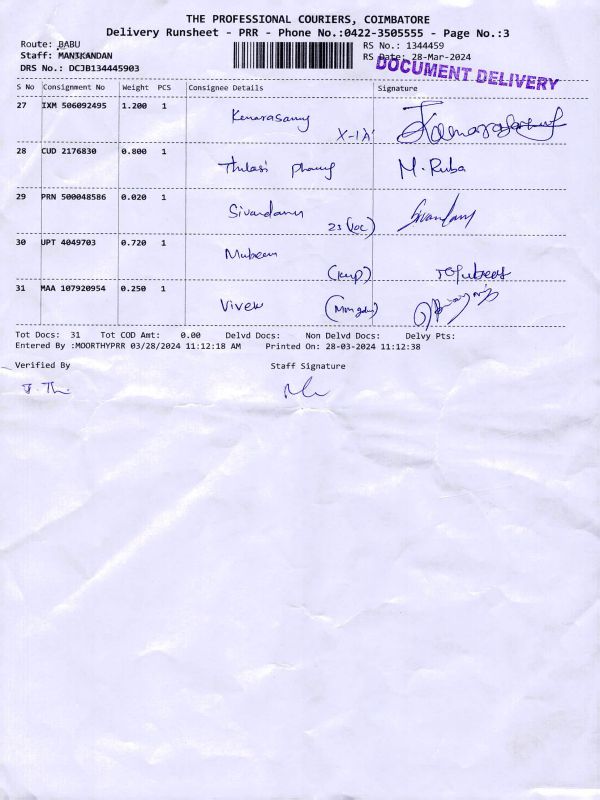 THE PROFESSIONAL COURIERS, COIMBATORE
Delivery Runsheet - PRR - Phone No.:0422-3505555 - Page No.:3
Route: BABU
RS No.: 1344459
Staff: MANIKANDAN
RS Date: 28-Mar-2024
DRS No.: DCJB134445903
DOCUMENT DELIVERY
S No Consignment No Weight PCS Consignee Details Signature
27 IXM 506092495 1.200 1 Kumarasamy
X-1A
28 CUD 2176830 0.800 1 Thulasi M. Ruba
29 PRN 500048586 0.020 1 Sivandam Sivandam
23
30 UPT 4049703 0.720 1 Mubeen
31 MAA 107920954 0.250 1 Vivek
Tot Docs: 31 Tot COD Amt: 0.00 Delvd Docs: Non Delvd Docs: Delvy Pts:
Entered By :MOORTHYPRR 03/28/2024 11:12:18 AM Printed On: 28-03-2024 11:12:38
Verified By Staff Signature